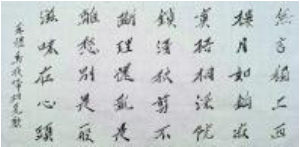 無言獨上西
樓月如鉤寂
寞梧桐深院
鎖清秋剪不
斷理還亂是
離愁別是一般
滋味在心頭